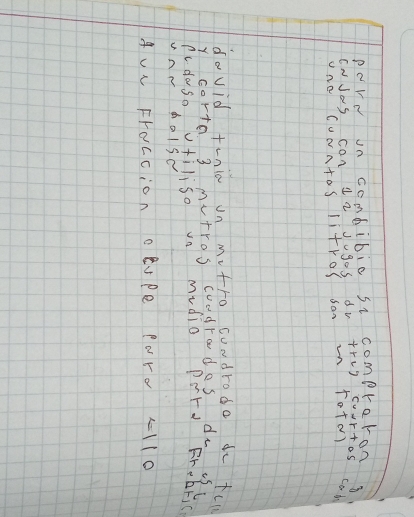 para un combibio se compraron 3
cajas con 12 jugos de tres cuartos cad
una cuantos litros son en total
david tenia un metro cuadrado de tel
y corto 3 metros cuadrados de es
pedaso utiliso un medio para
una bolsa
que Fraccion ocupe para ello